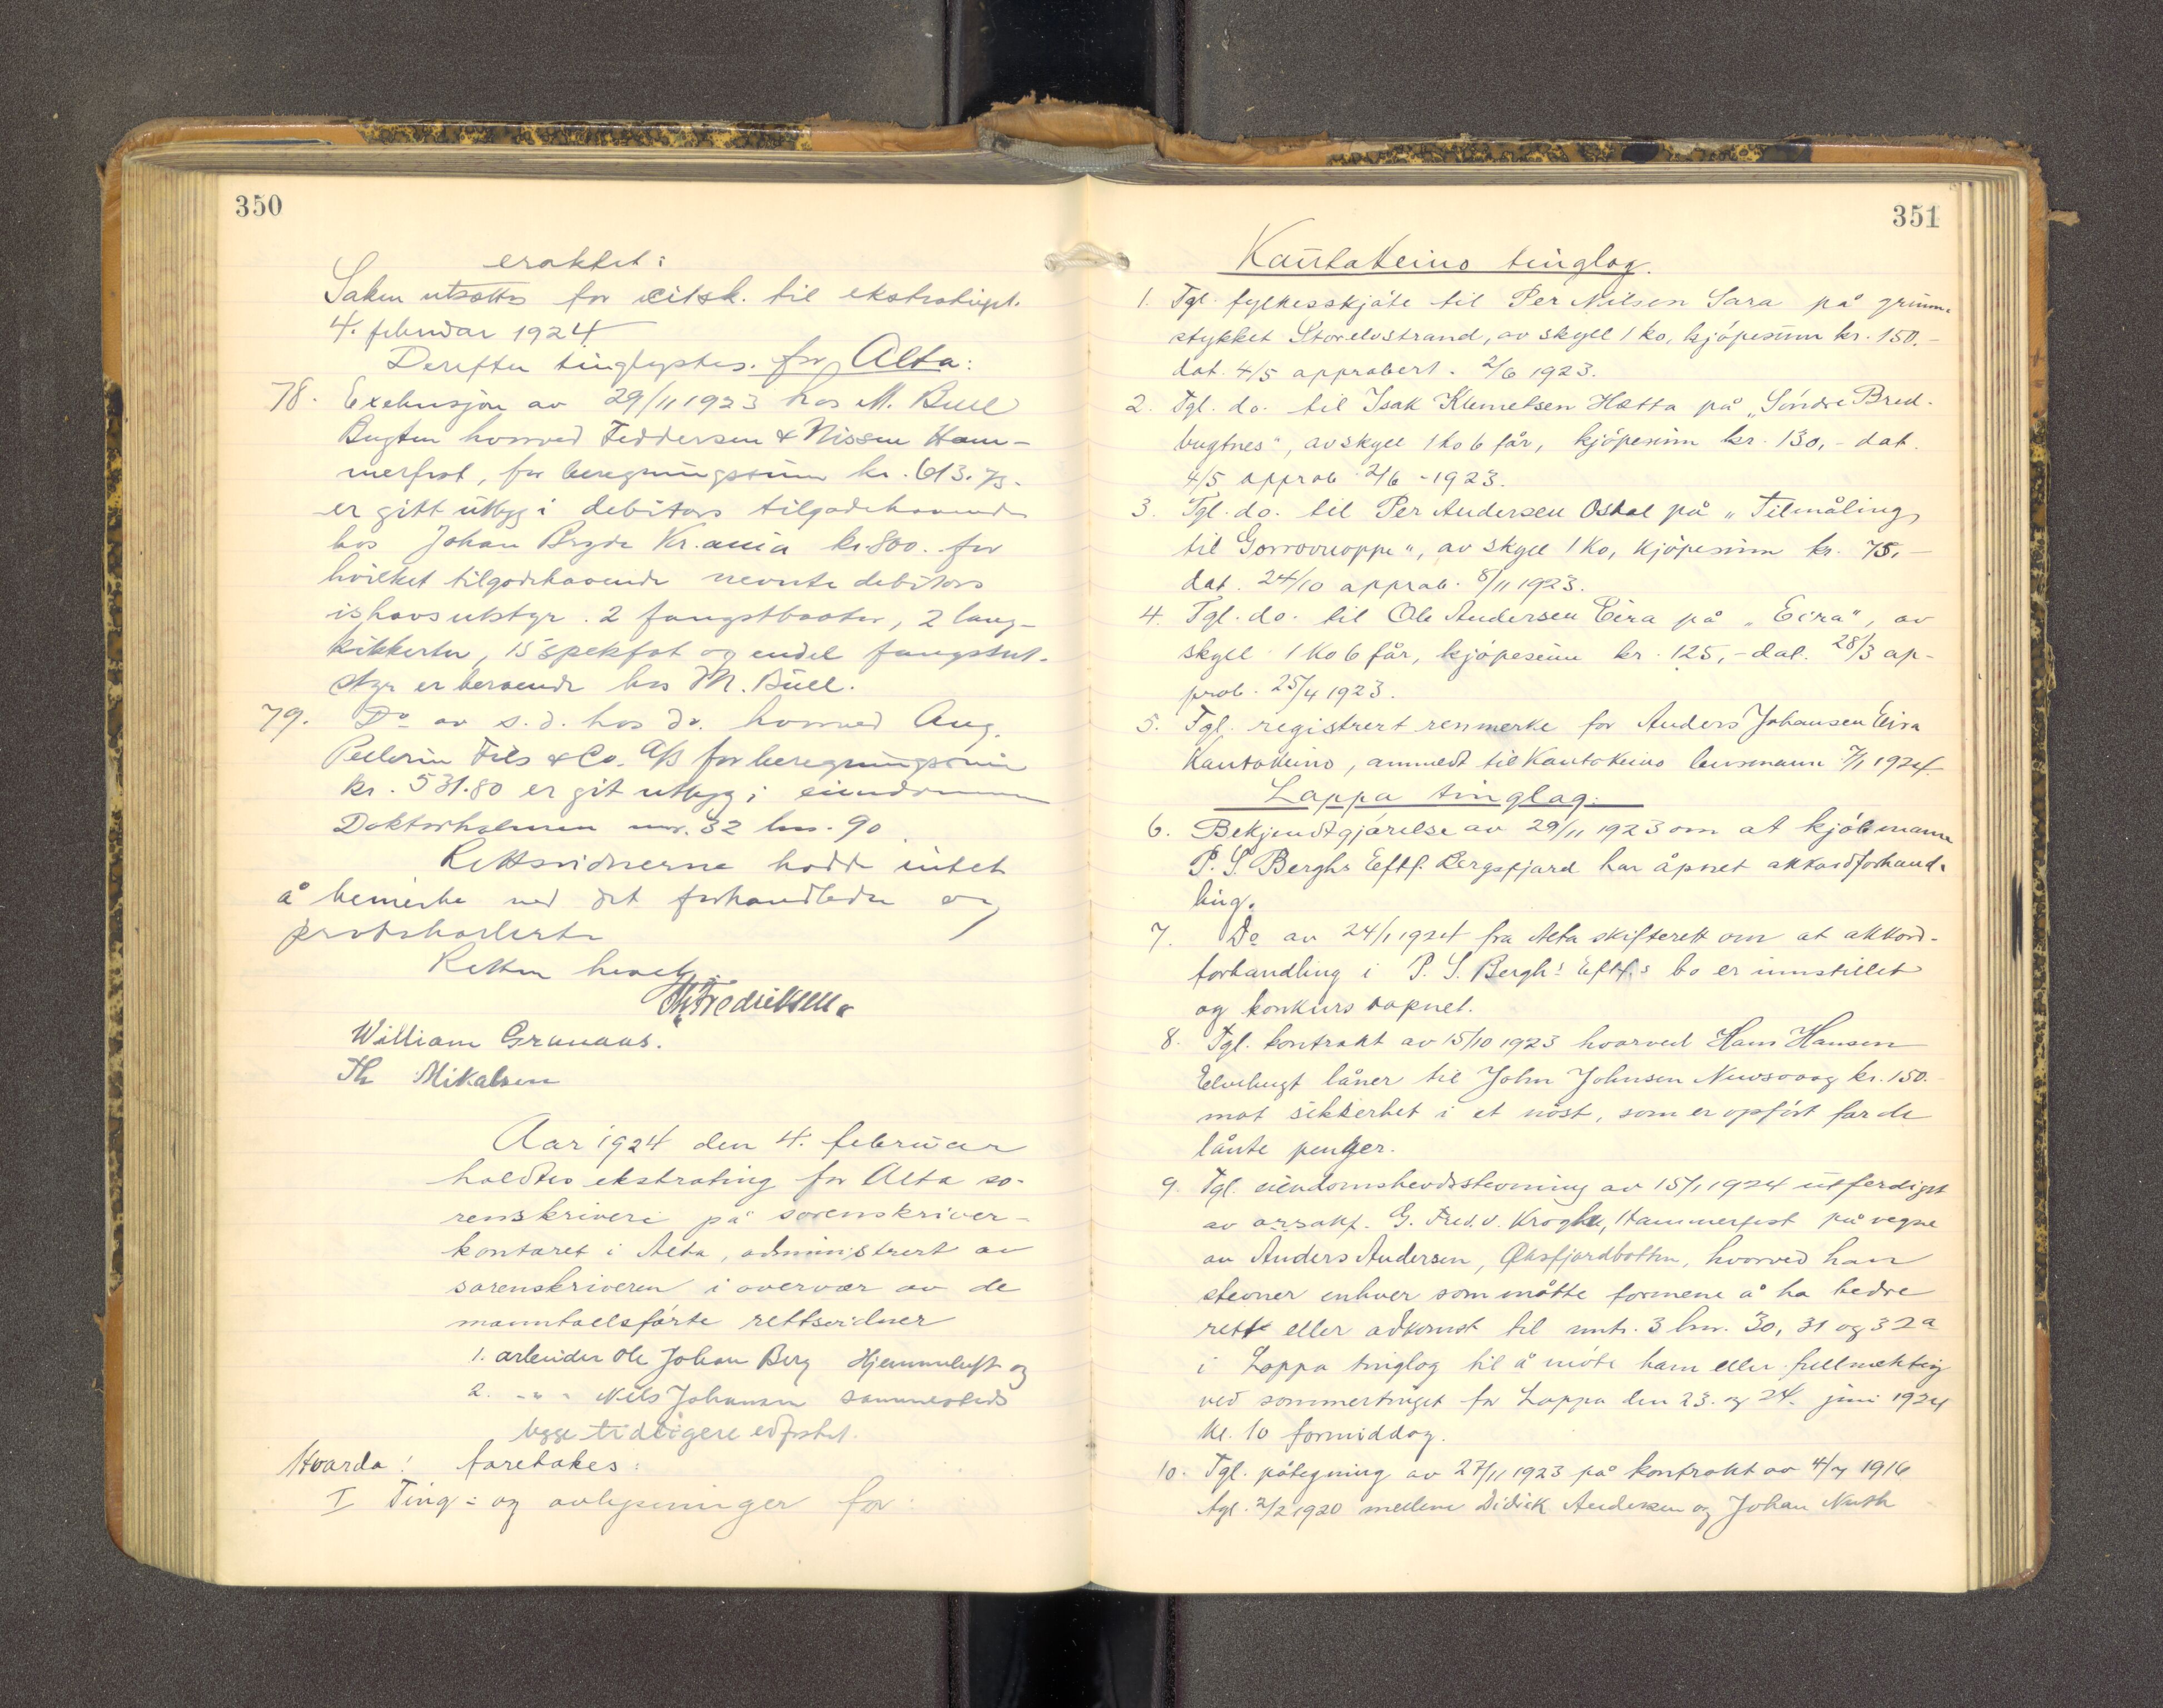 350
eraktet:
Saken utsættes for citsk. til ekstratinget
4. februar 1924
Derefter tinglystes for Alta:
78. Exekusjon av 29/11 1923 hos M. Bull
Bugten hvorved Feddersen & Nissen Ham-
merfest, for beregningssum kr. 613.73.
er gitt utlegg i debitors tilgodehavende
hos Johan Bryde Kr.ania kr. 800. for
hvilket tilgodehavende nevnte debitors
ishavsutstyr. 2 fangstbaater, 2 lang-
kikkerter, 15 spekfat og endel fangstut-
styr er beroende hos M. Bull.
79. Do av s.d. hos do. hvorved Aug.
Pellerin Fils & Co. A/S for beregningssum
kr. 531.80 er git utlegg i eiendommen
Doktorholmen mnr. 32 bnr. 90
Rettsvidnerne hadde intet
å bemerke ved det forhandlede og
protokollerte
Retten hevet
Fredriksen.
William Granaas.
Th Mikalsen
Aar 1924 den 4. februar
holdtes ekstrating for Alta so-
renskriveri på sorenskriver-
kontoret i Alta, administrert av
sorenskriveren i overvær av de
manntallsførte rettsvidner
1. arbeider Ole Johan Berg Hjemmeluft og
2. -"- Nils Johansen sammesteds
begge tidligere edfestet.
Hvorda! foretokes:
I Ting- og avlysninger for:
351
Kautokeino tinglag.
1. Tgl. fylkesskjøte til Per Nilsen Sara på grunn-
stykket Storelvstrand, av skyll 1 ko, kjøpesum kr. 150.-
dat. 4/5 approbert. 2/6 1923.
2. Tgl. do. til Isak Klemetsen Hætta på „Søndre Bred-
bugtnes", av skyll 1 ko 6 får, kjøpesum kr. 130,- dat.
4/5 approb 2/6 - 1923.
3. Tgl. do. til Per Andersen Oskal på „Tilmåling
til Gorrovuoppe", av skyll 1 ko, kjøpesum kr. 75,-
dat. 24/10 approb. 8/11 1923.
4. Tgl. do. til Ole Andersen Eira på „Eira", av
skyll 1 ko 6 får, kjøpesum kr. 125,- dat. 28/3 ap-
prob. 25/4 1923.
5. Tgl. registrert renmerke for Anders Johansen Eira
Kautokeino, anmeldt til Kautokeino lensmann 7/1 1924.
Loppa tinglag.
6. Bekjendtgjørelse av 29/11 1923 om at kjøbmann
P. S. Berghs Eftf. Bergsfjord har åpnet akkordforhand-
ling.
7. Do av 24/1 1924 fra Alta skifterett om at akkord-
forhandling i P. S. Bergh's Eftf.s bo er innstillet
og konkurs aapnet.
8. Tgl. kontrakt av 15/10 1923 hvorved Hans Hansen
Elvebugt låner til John Johnsen Nuvsvaag kr. 150.
mot sikkerhet i et nøst, som er opført for de
lånte penger.
9. Tgl. eiendomshevdsstevning av 15/1 1924 utferdiget
av o.r.sakf. G. Fred. v. Krogh, Hammerfest på vegne
av Anders Andersen, Øksfjordbotten, hvorved han
stevner enhver som måtte formene å ha bedre
rett eller adkomst til mnr. 3 bnr. 30, 31 og 32a
i Loppa tinglag til å møte ham eller fullmektig
ved sommertinget for Loppa den 23. og 24. juni 1924
kl. 10 formiddag.
10. Tgl. påtegning av 27/11 1923 på kontrakt av 4/7 1916
tgl. 2/2 1920 mellem Didrik Andersen og Johan Nuth